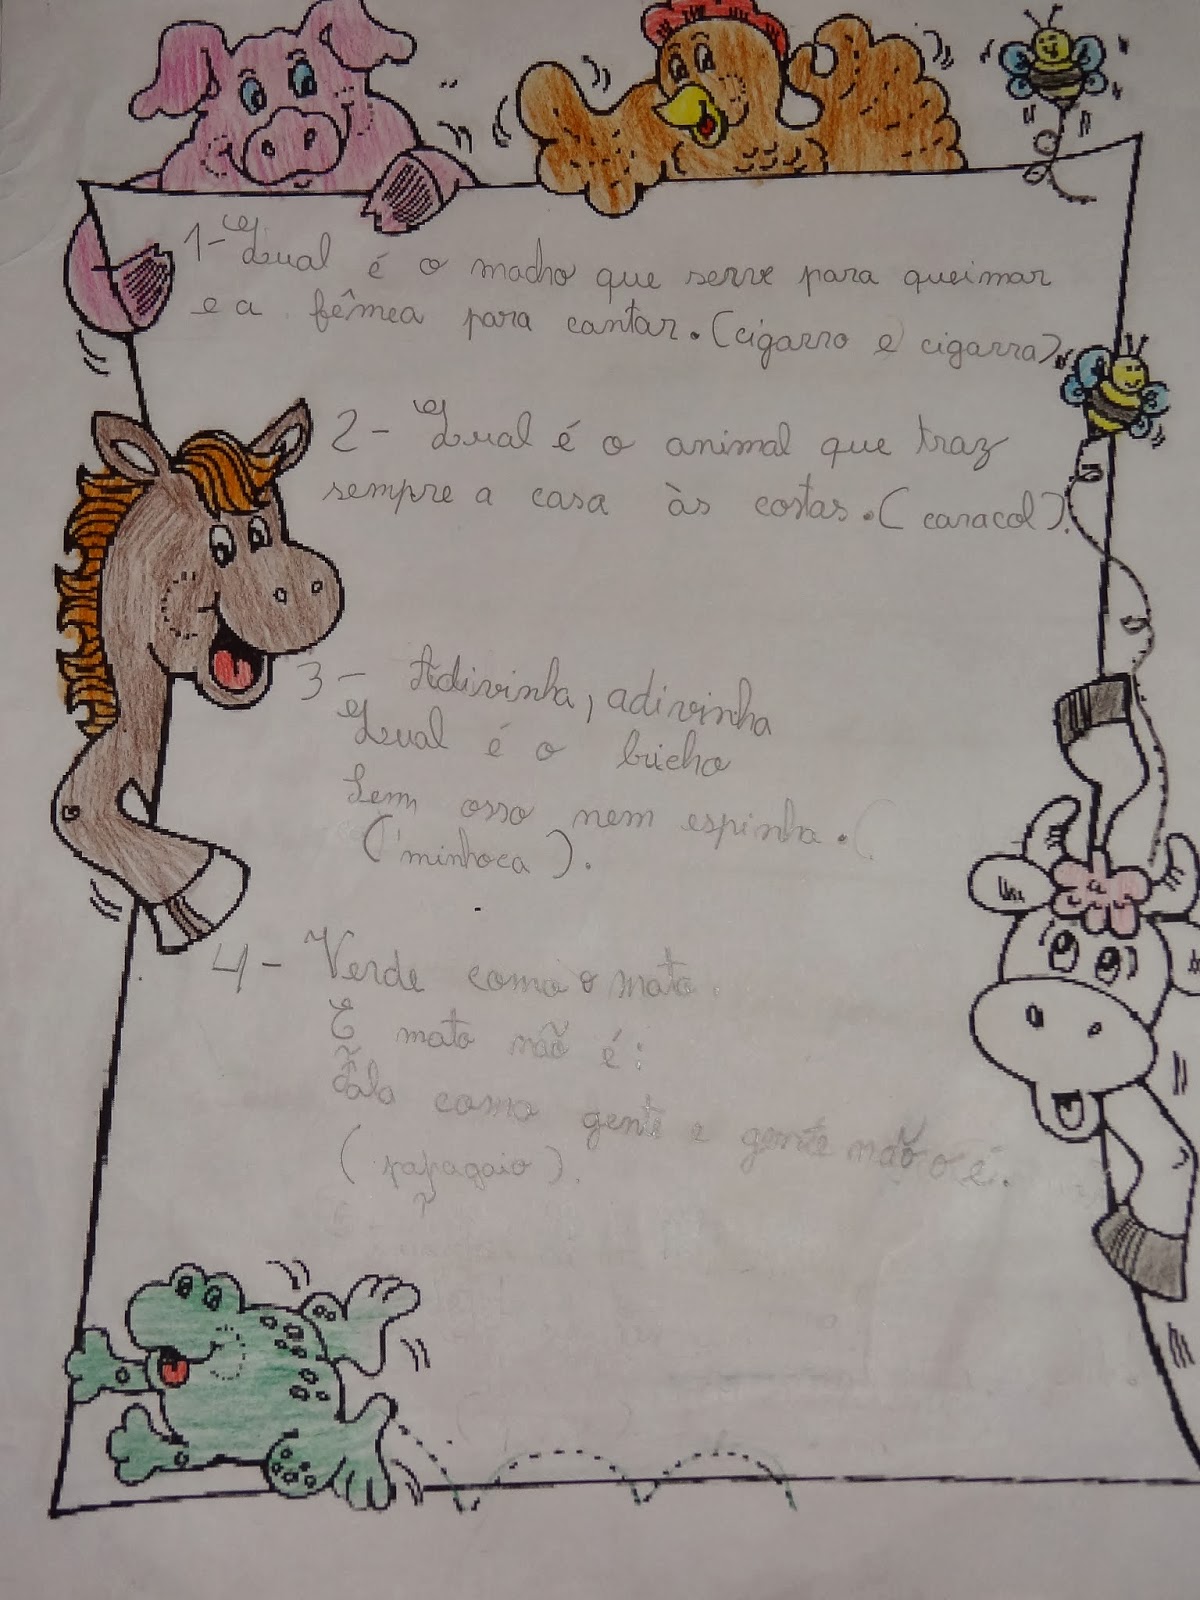 1- Qual é o macho que serve para queimar
e a fêmea para cantar. (cigarro e cigarra).
2- Qual é o animal que traz
sempre a casa às costas. (caracol).
3- Adivinha, adivinha
Qual é o bicho
Sem osso nem espinha.
(minhoca).
4- Verde como o mato
E mato não é:
Fala como gente e gente não o é.
(papagaio).